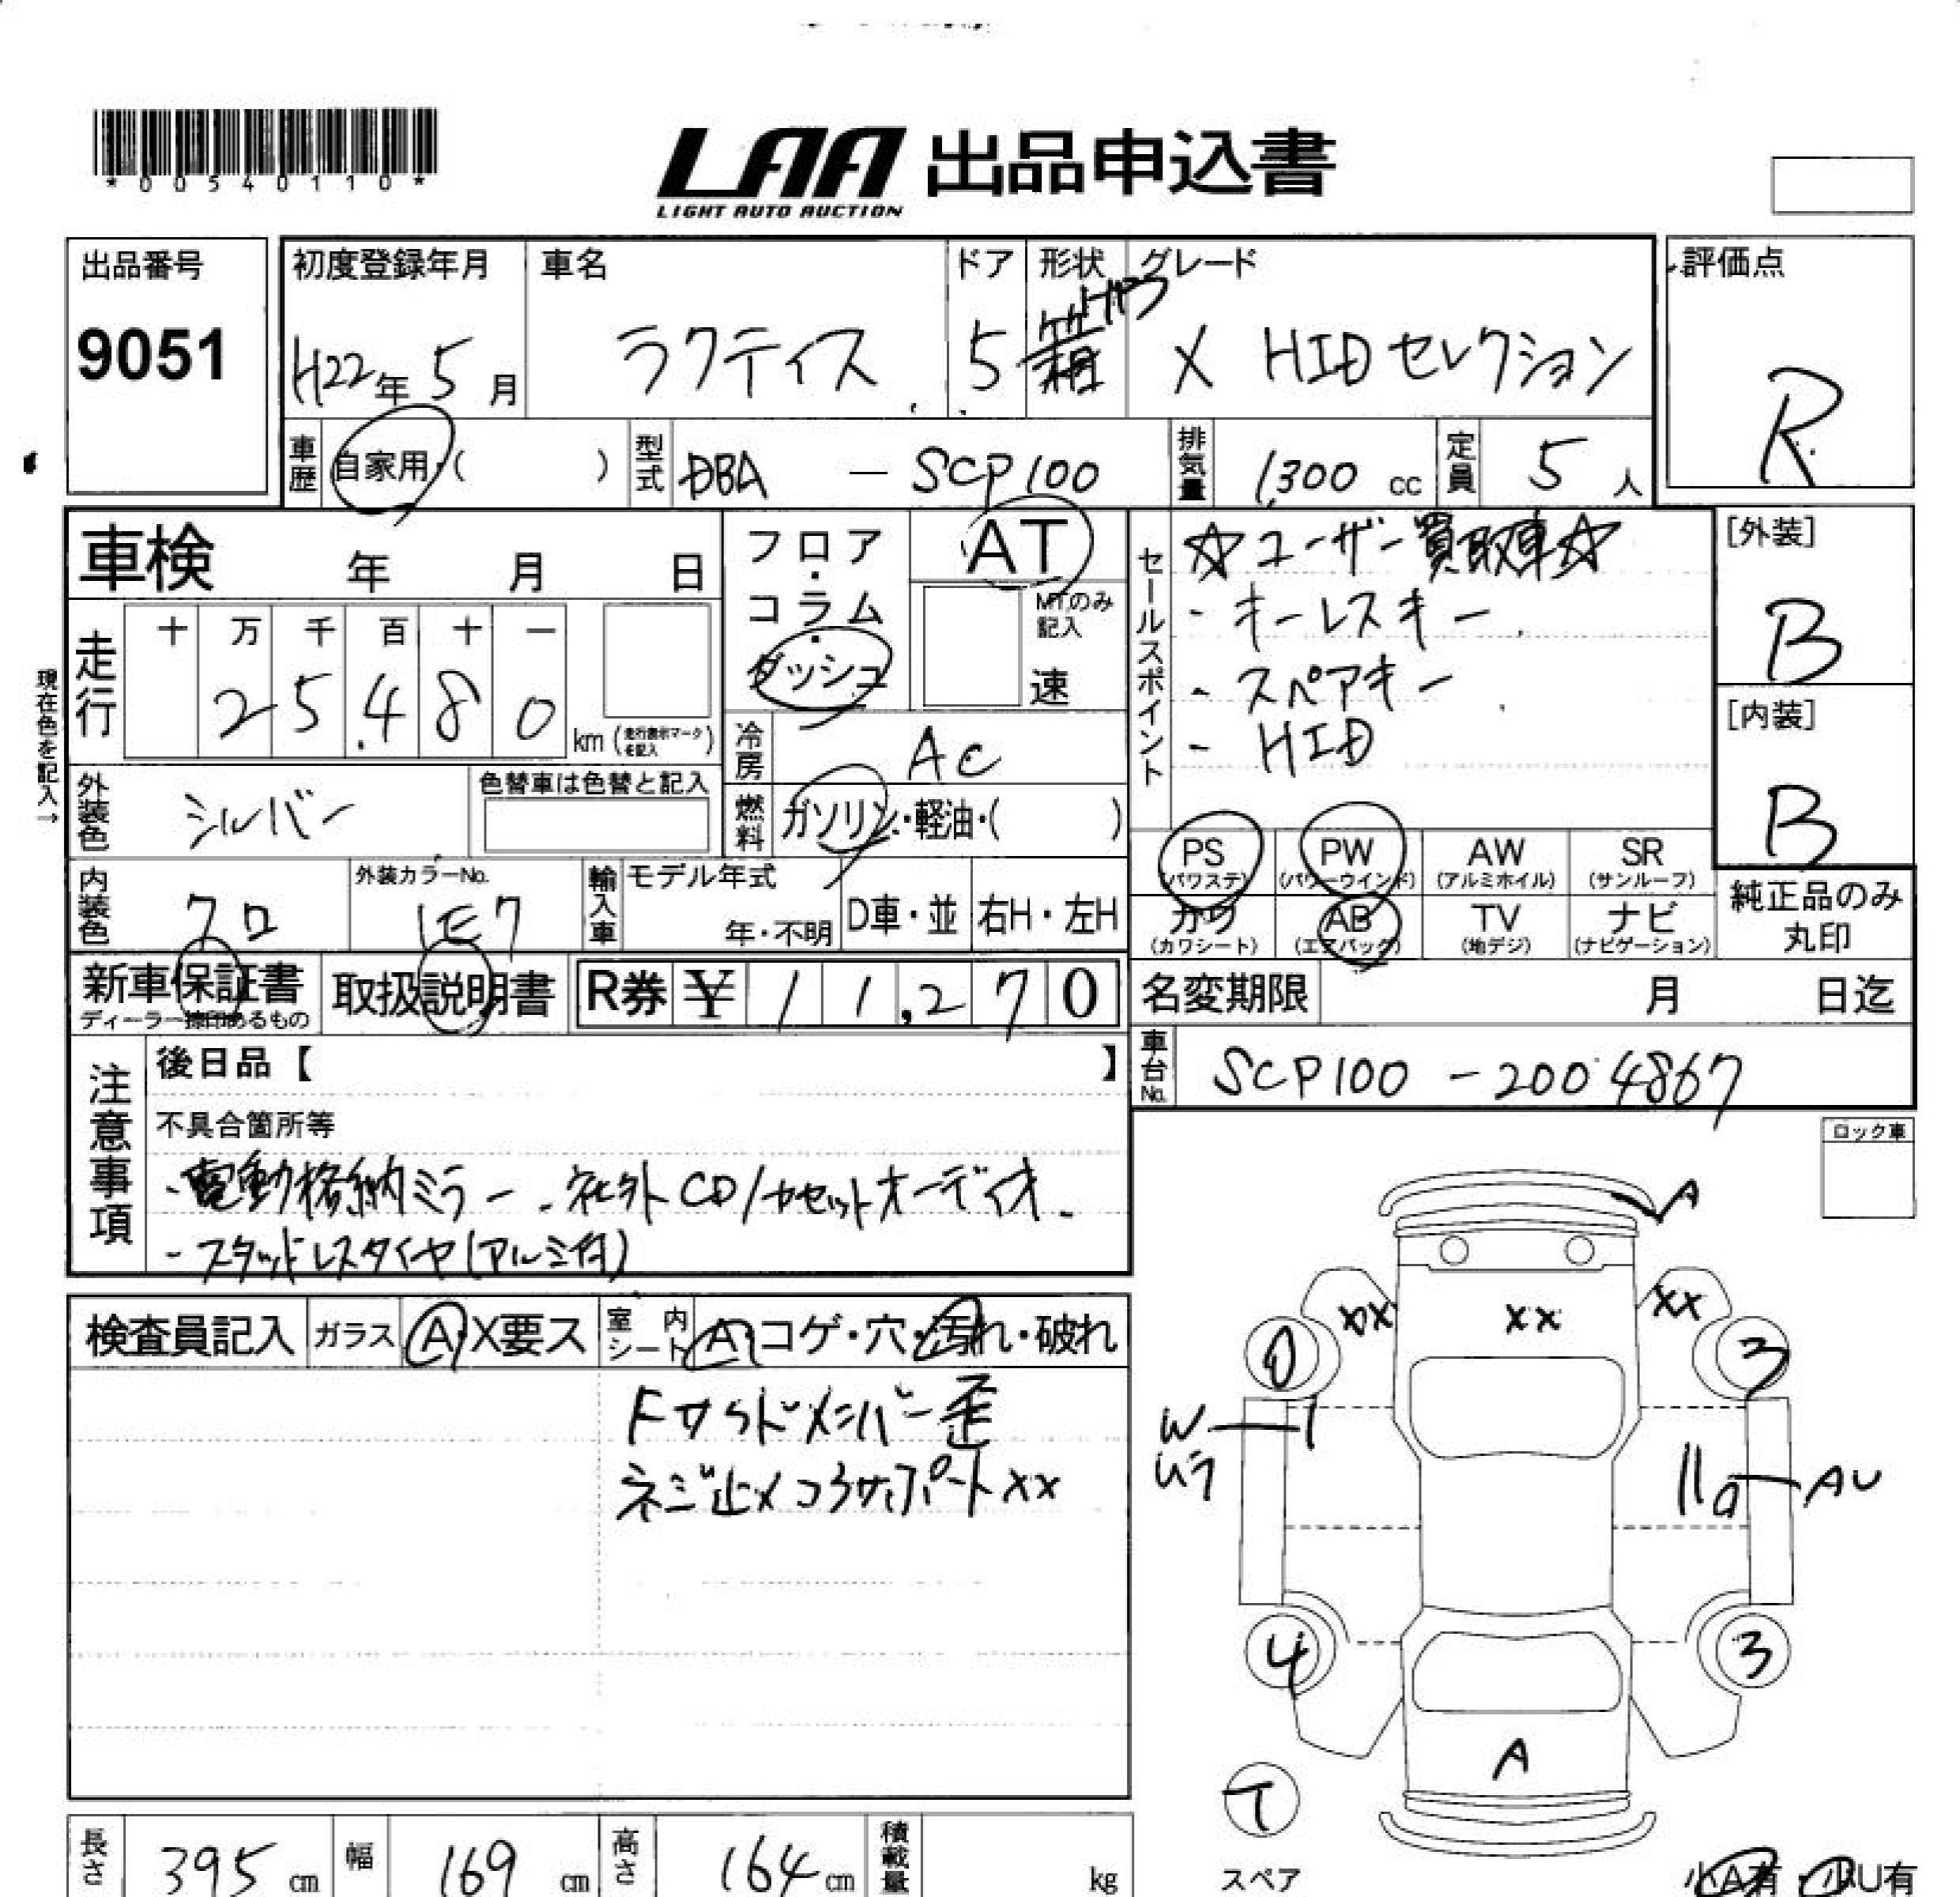 *00540110*
LAA 出品申込書
LIGHT AUTO AUCTION
出品番号
9051
初度登録年月
H22年 5月
車名
ラクティス
ドア
5
形状
箱
グレード
X HIDセレクション
評価点
R
車歴
自家用・( )
型式
DBA — SCP100
排気量
1,300 cc
定員
5 人
車検 年 月 日
フロア・コラム・ダッシュ
AT
MTのみ記入
速
セールスポイント
☆ユーザー買取車☆
・キーレスキー
・スペアキー
・HID
[外装]
B
[内装]
B
現在色を記入→
走行
十 万 千 百 十 一
2 5 4 8 0
km (走行表示マークを記入)
冷房
AC
外装色
シルバー
色替車は色替と記入
燃料
ガソリン・軽油・( )
内装色
クロ
外装カラーNo.
1E7
輸入車
モデル年式
年・不明
D車・並
右H・左H
PS (パワステ)
PW (パワーウインド)
AW (アルミホイル)
SR (サンルーフ)
カワ (カワシート)
AB (エアバック)
TV (地デジ)
ナビ (ナビゲーション)
純正品のみ
丸印
新車保証書
ディーラー捺印あるもの
取扱説明書
R券 ¥ 1 1,2 7 0
名変期限 月 日迄
車台No.
SCP100 - 2004867
注意事項
後日品【 】
不具合箇所等
・電動格納ミラー ・社外CD/カセットオーディオ
・スタッドレスタイヤ(アルミ付)
ロック車
検査員記入
ガラス
A・X要ス
室内シート
A・コゲ・穴・汚れ・破れ
Fサイドメンバー歪
ネジ止メコアサポートXX
A
XX
XX
XX
0
3
W
ムラ
AU
4
3
A
T
スペア
小A有・小U有
長さ
395 cm
幅
169 cm
高さ
164 cm
積載量
kg